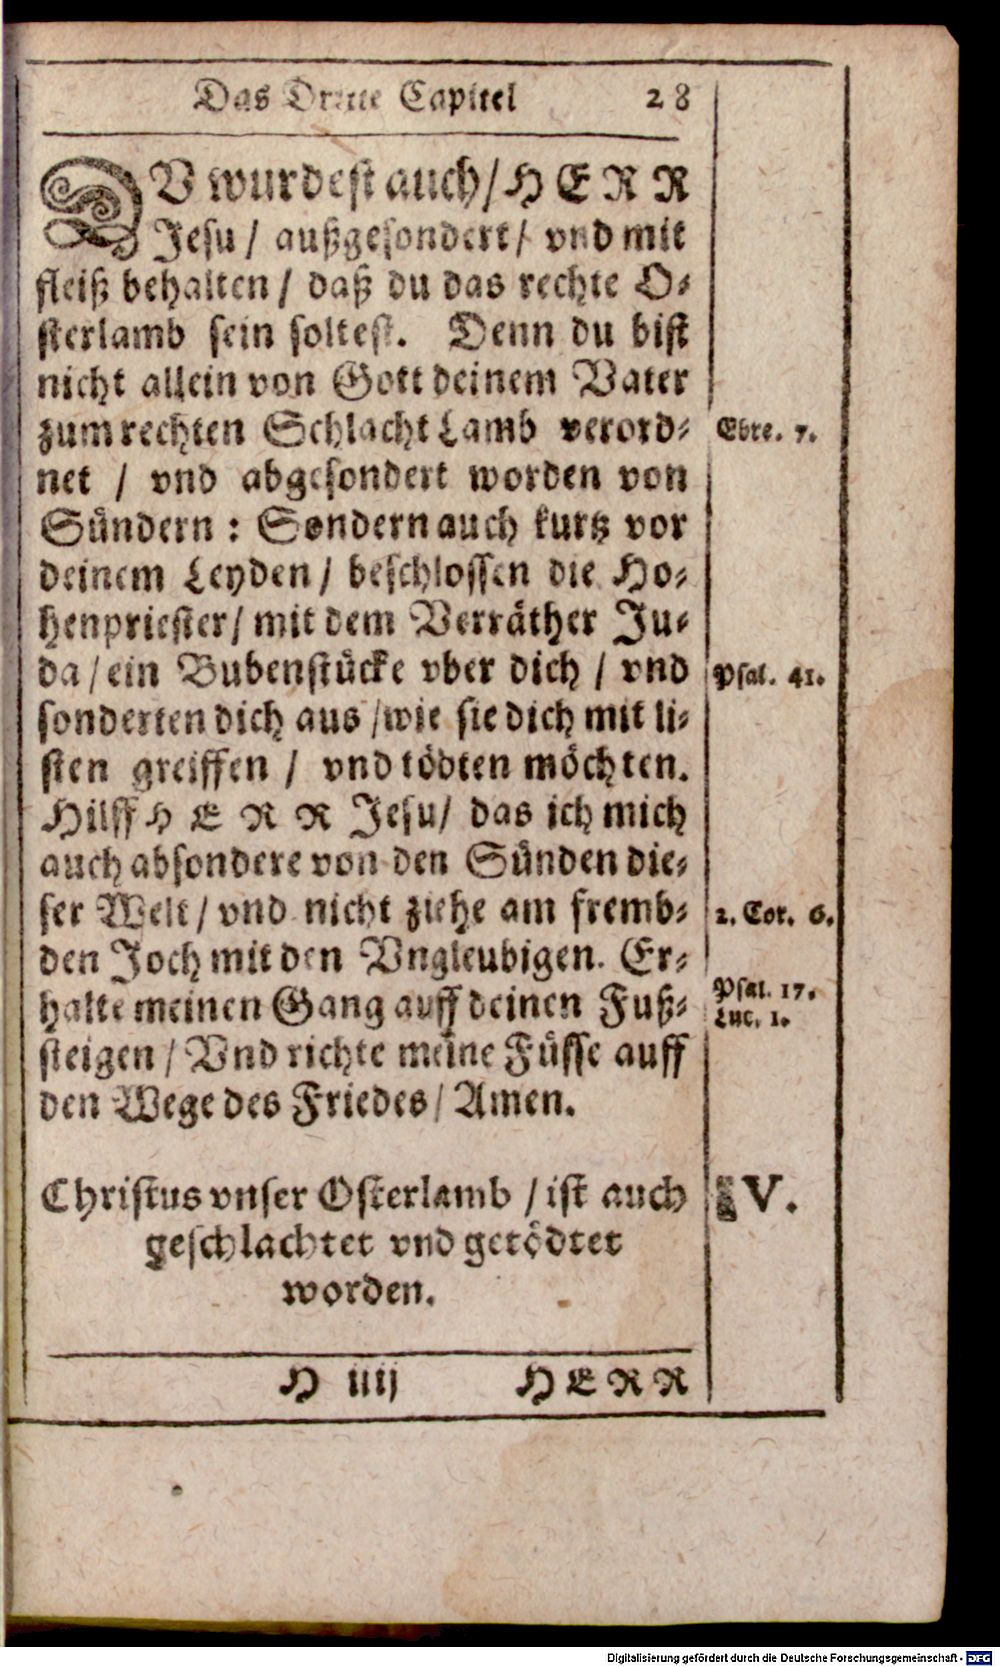 Das Dritte Capitel 28
DV wurdest auch / HERR
Jesu / außgesondert / vnd mit
fleiß behalten / daß du das rechte O-
sterlamb sein soltest. Denn du bist
nicht allein von Gott deinem Vater
zum rechten Schlacht Lamb verord-
Ebre. 7.
net / vnd abgesondert worden von
Sündern : Sondern auch kurtz vor
deinem Leyden / beschlossen die Ho-
henpriester / mit dem Verräther Ju-
da / ein Bubenstücke vber dich / vnd
Psal. 41.
sonderten dich aus / wie sie dich mit li-
sten greiffen / vnd tödten möchten.
Hilff HERR Jesu / das ich mich
auch absondere von den Sünden die-
ser Welt / vnd nicht ziehe am fremb-
2. Cor. 6.
den Joch mit den Vngleubigen. Er-
halte meinen Gang auff deinen Fuß-
Psal. 17.
Luc. 1.
steigen / Vnd richte meine Füsse auff
den Wege des Friedes / Amen.
Christus vnser Osterlamb / ist auch
V.
geschlachtet vnd getödtet
worden.
H iiij HERR
Digitalisierung gefördert durch die Deutsche Forschungsgemeinschaft - DFG